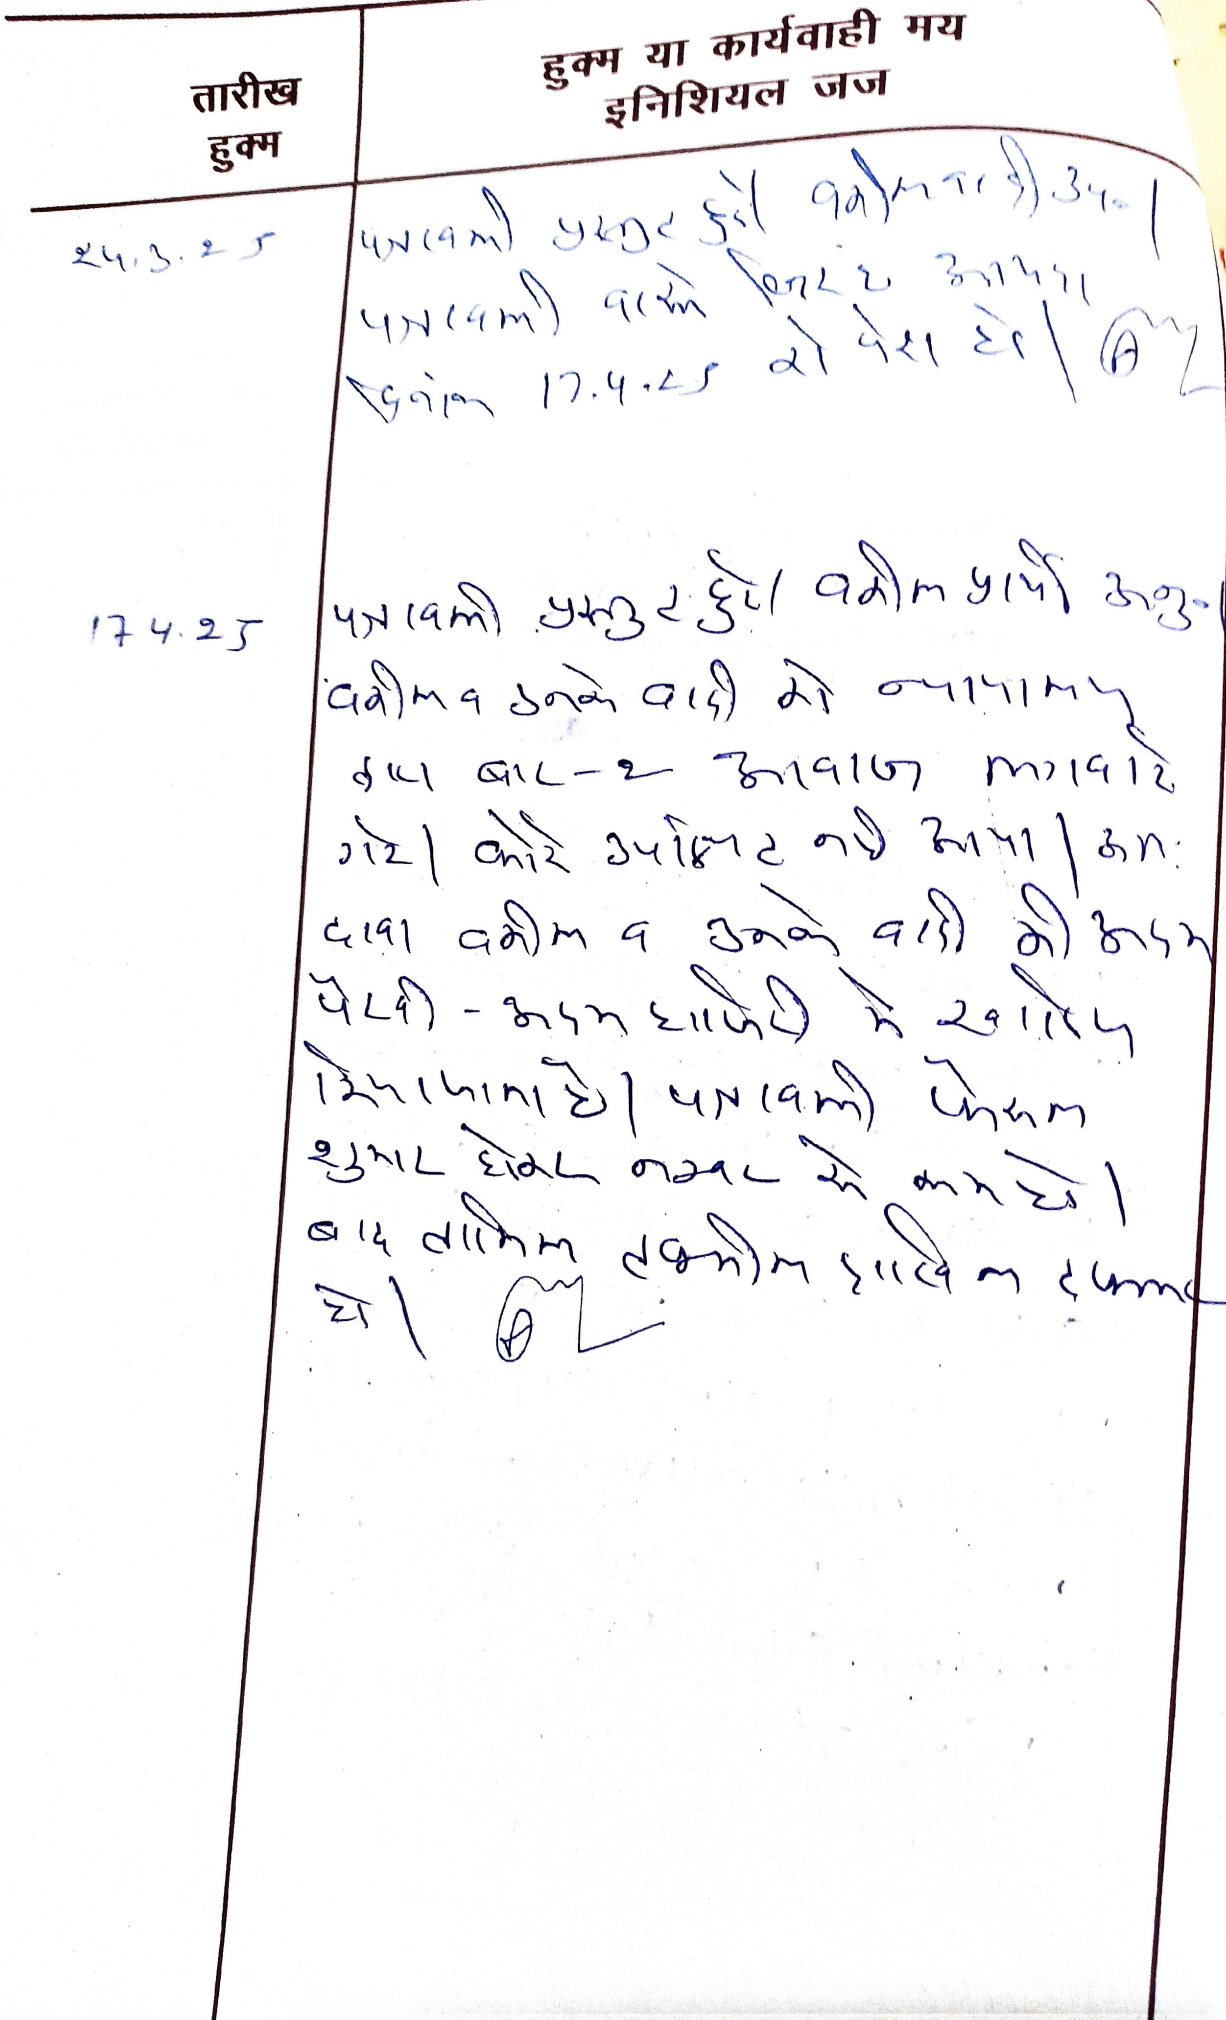 तारीख
हुक्म
हुक्म या कार्यवाही मय
इनिशियल जज
24.3.25
पत्रावली प्रस्तुत हुई। वकील वादी उप०।
पत्रावली वास्ते आयन्दा
दिनांक 17.4.25 को पेश हो।
17.4.25
पत्रावली प्रस्तुत हुई। वकील प्रार्थी अनु०।
वकील व उनके वादी को न्यायालय
द्वारा बार-2 आवाज लगवाई
गई। कोई उपस्थित नहीं आया। अतः
दावा वकील व उनके वादी की अदम
पैरवी - अदम हाजिरी में खारिज
किया जाता है। पत्रावली फैसल
शुमार होकर नम्बर से कम हो।
बाद तामिल तकमील दाखिल दफ्तर
हो।